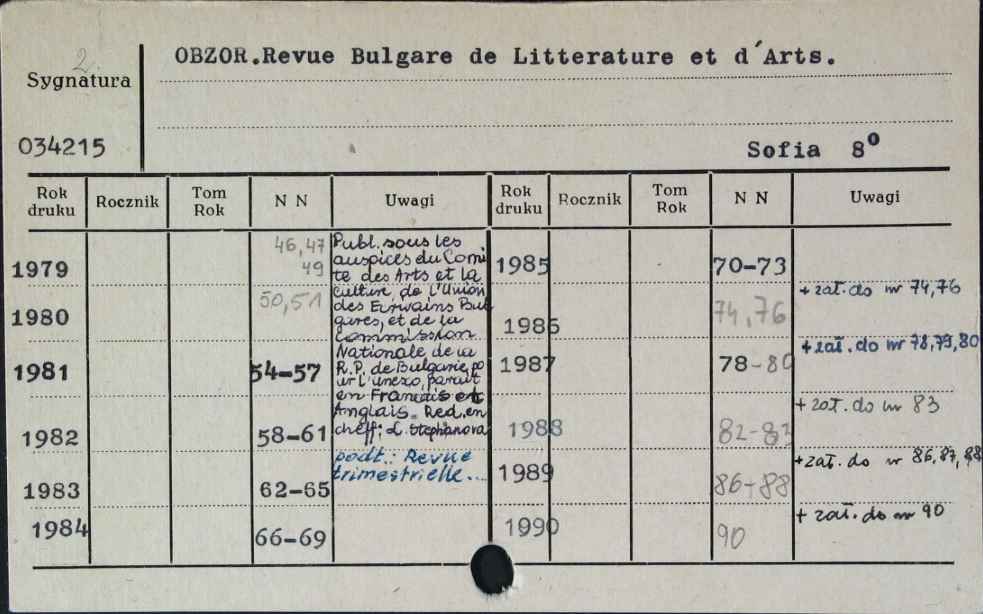 2.
OBZOR.Revue Bulgare de Litterature et d'Arts.
Sygnatura
034215
Sofia 8⁰
Rok druku Rocznik Tom Rok N N Uwagi Rok druku Rocznik Tom Rok N N Uwagi
1979 46,47 49
1980 50,51
1981 54-57
1982 58-61
1983 62-65
1984 66-69
Publ. sous les
auspices du Comi
té des Arts et la
Culture, de l'Union
des Ecrivains Bul
gares, et de la
Commission
Nationale de la
R.P. de Bulgarie, po
ur l'Unesco, parait
en Francais et
Anglais. Red. en
cheff: L. Stephanova
podt.: Revue
trimestrielle...
1985 70-73
1986 74,76 + zał. do nr 74,76
1987 78-80 + zał. do nr 78,79,80
1988 82-83 + zał. do nr 83
1989 86-88 + zał. do nr 86,87,88
1990 90 + zał. do nr 90